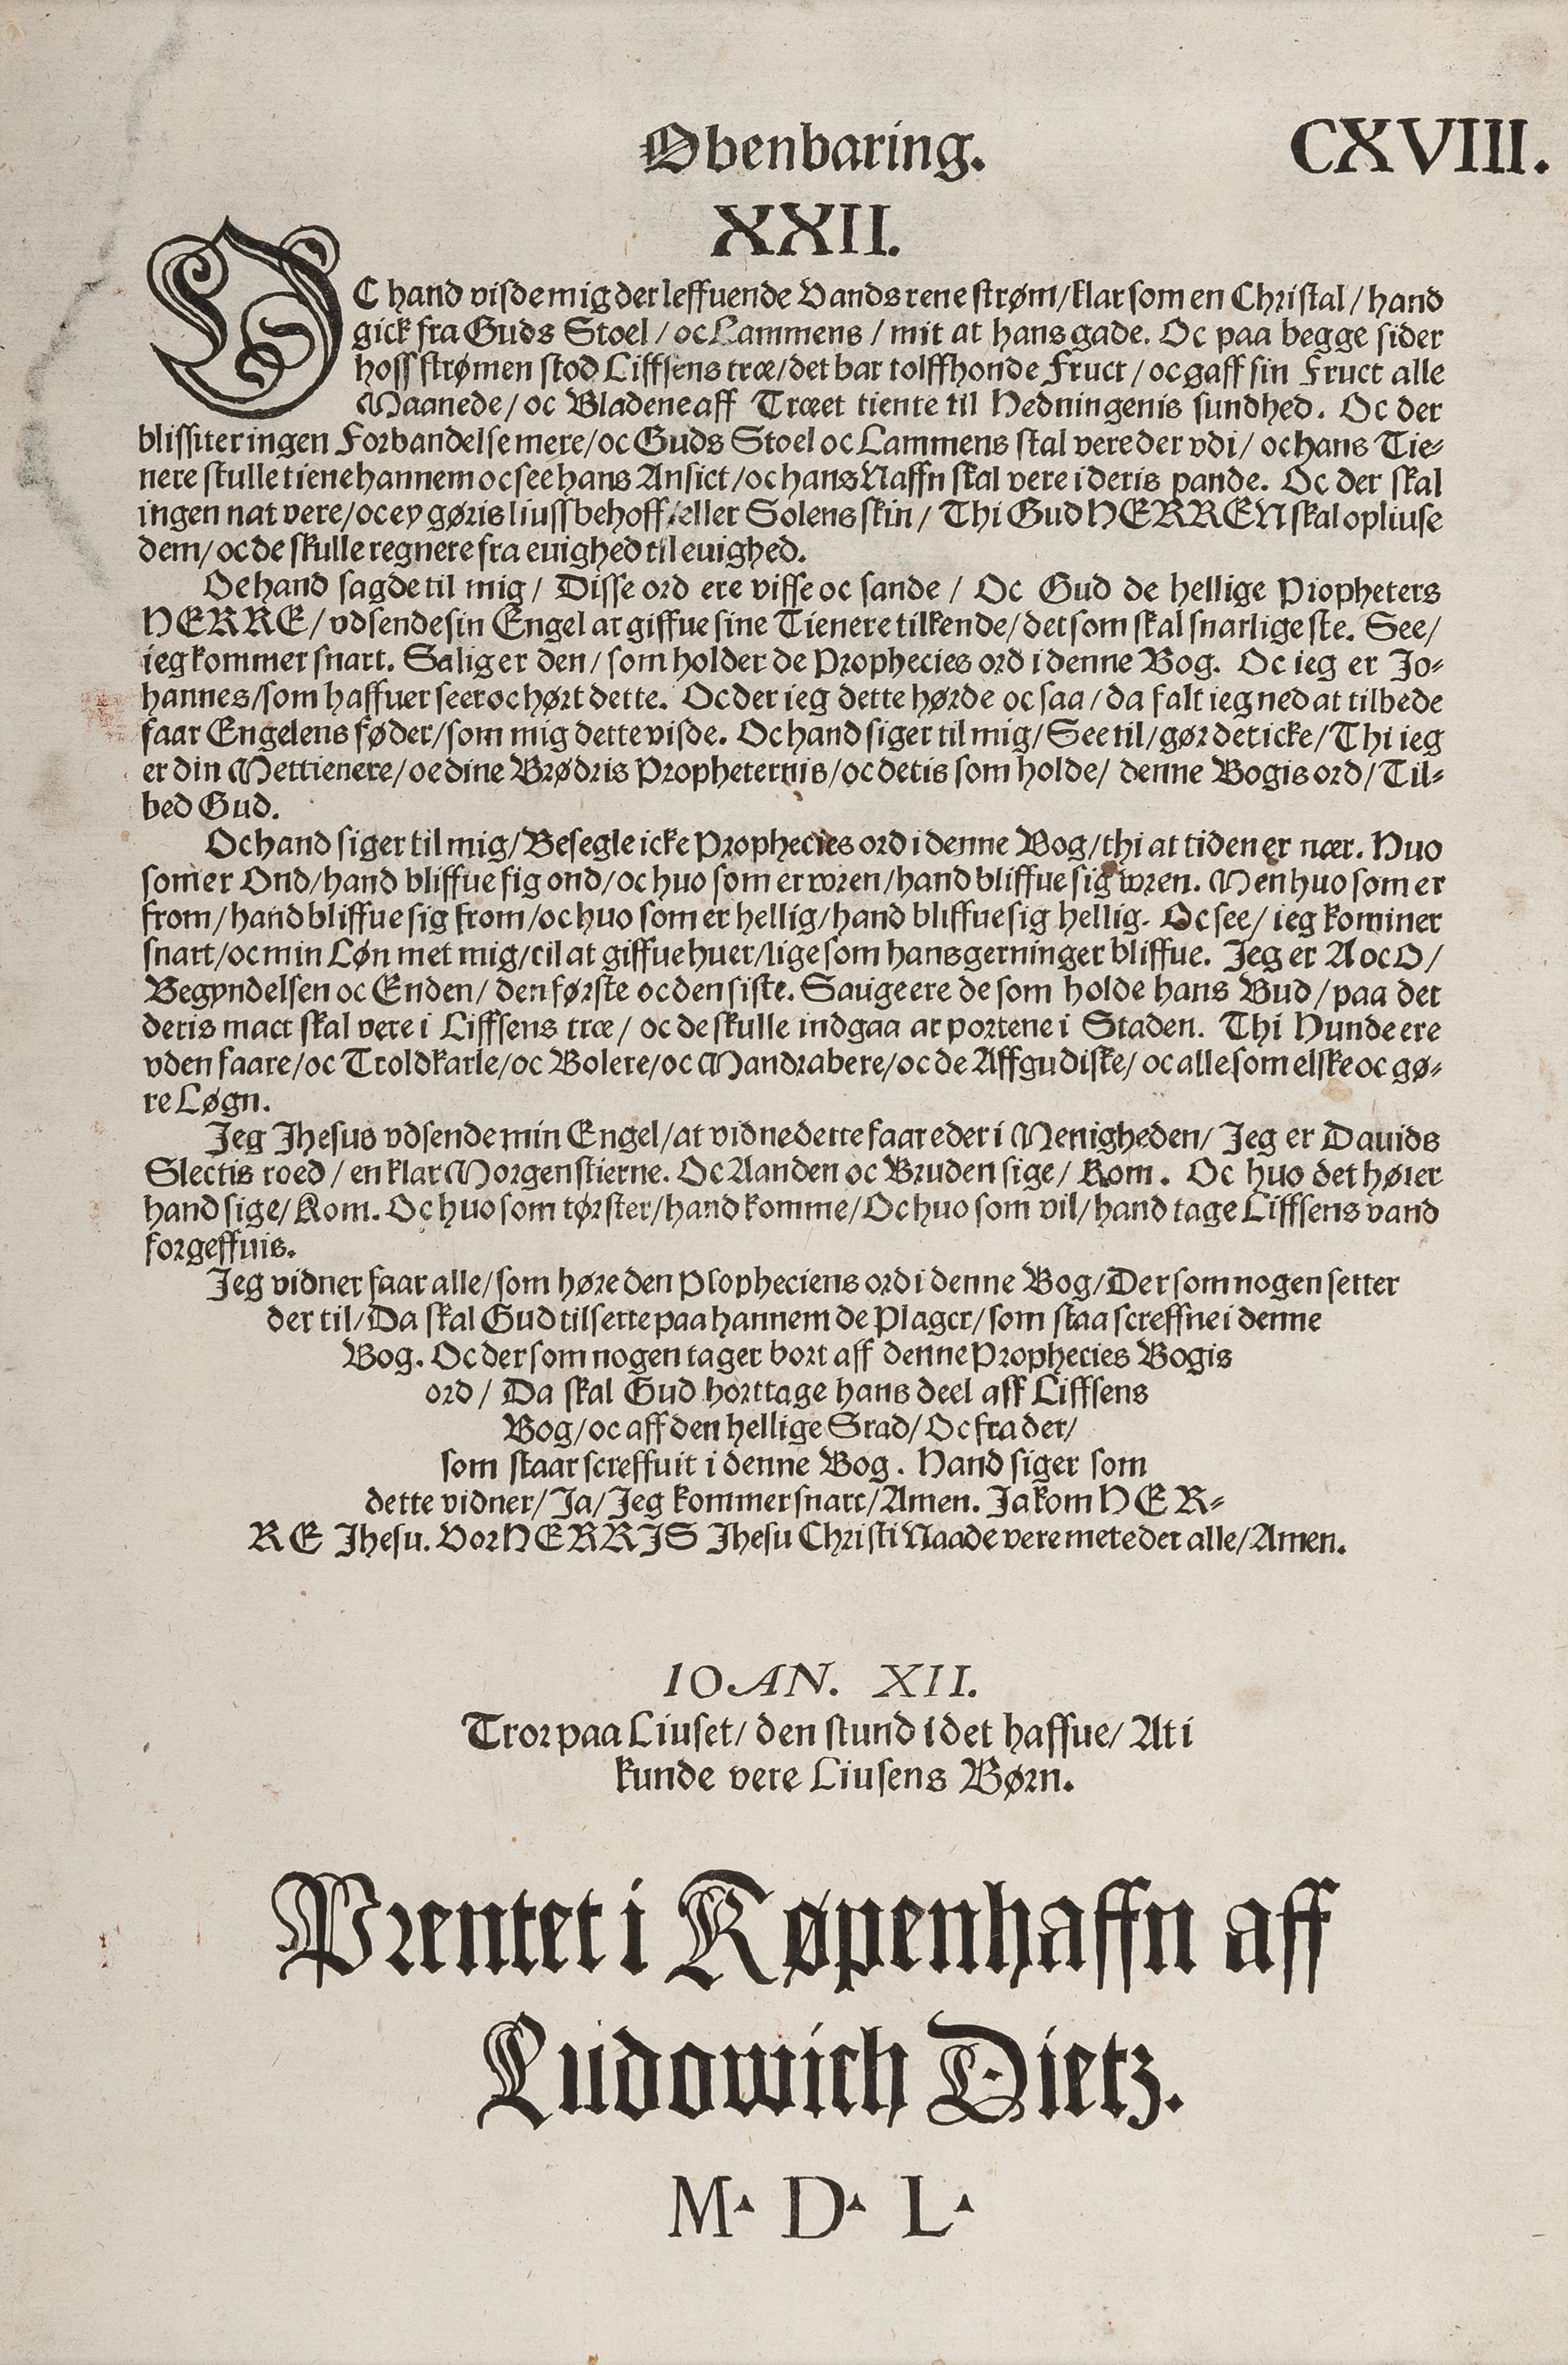 Obenbaring. CXVIII.
XXII.
OC hand visde mig det leffuende Vands rene strøm/klar som en Christal/hand
gick fra Guds Stoel/oc Lammens/mit at hans gade. Oc paa begge sider
hoss strømen stod Liffsens træ/det bar tolffhonde Fruct/oc gaff sin Fruct alle
Maanede/oc Bladene aff Træet tiente til Hedningenis sundhed. Oc der
bliffiter ingen Forbandelse mere/oc Guds Stoel oc Lammens skal vere der vdi/oc hans Tie-
nere skulle tiene hannem oc see hans Ansict/oc hans Naffn skal vere i deris pande. Oc der skal
ingen nat vere/oc ey gøris liuss behoff/eller Solens skin/Thi Gud HERREN skal opliuse
dem/oc de skulle regnere fra euighed til euighed.
Oc hand sagde til mig/Disse ord ere visse oc sande/Oc Gud de hellige Propheters
HERRE/vdsende sin Engel at giffue sine Tienere tilkende/det som skal snarlige ske. See/
ieg kommer snart. Salig er den/som holder de Prophecies ord i denne Bog. Oc ieg er Jo-
hannes/som haffuer seet oc hørt dette. Oc der ieg dette hørde oc saa/da falt ieg ned at tilbede
faar Engelens føder/som mig dette visde. Oc hand siger til mig/See til/gør det icke/Thi ieg
er din Mettienere/oc dine Brødris Propheternis/oc detis som holde/denne Bogis ord/Til-
bed Gud.
Oc hand siger til mig/Besegle icke Prophecies ord i denne Bog/thi at tiden er nær. Huo
som er Ond/hand bliffue sig ond/oc huo som er wren/hand bliffue sig wren. Men huo som er
from/hand bliffue sig from/oc huo som er hellig/hand bliffue sig hellig. Oc see/ieg kommer
snart/oc min Løn met mig/til at giffue huer/lige som hans gerninger bliffue. Jeg er A oc O/
Begyndelsen oc Enden/den første oc den siste. Salige ere de som holde hans Bud/paa det
deris mact skal vere i Liffsens træ/oc de skulle indgaa at portene i Staden. Thi Hunde ere
vden faare/oc Troldkarle/oc Bolere/oc Mandrabere/oc de Affgudiske/oc alle som elske oc gø-
re Løgn.
Jeg Jhesus vdsende min Engel/at vidne dette faar eder i Menigheden/Jeg er Dauids
Slectis roed/en klar Morgenstierne. Oc Aanden oc Bruden sige/Kom. Oc huo det hører
hand sige/Kom. Oc huo som tørster/hand komme/Oc huo som vil/hand tage Liffsens vand
forgeffuis.
Jeg vidner faar alle/som høre den Psopheciens ord i denne Bog/Der som nogen setter
der til/Da skal Gud tilsette paa hannem de Plager/som staa screffne i denne
Bog. Oc der som nogen tager bort aff denne Prophecies Bogis
ord/Da skal Gud borttage hans deel aff Liffsens
Bog/oc aff den hellige Stad/Oc fra det/
som staar screffuit i denne Bog. Hand siger som
dette vidner/Ja/Jeg kommer snart/Amen. Ja kom HER-
RE Jhesu. Vor HERRIS Jhesu Christi Naade vere met eder alle/Amen.
IOAN. XII.
Tror paa Liuset/den stund i det haffue/At i
kunde vere Liusens Børn.
Prentet i Køpenhaffn aff
Ludowich Dietz.
M. D. L.